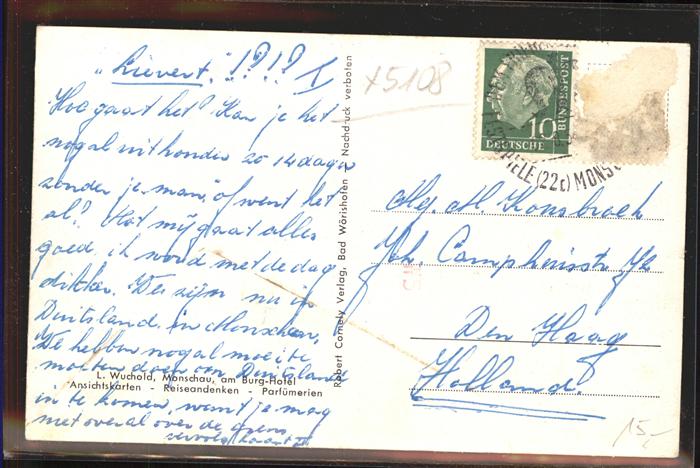 "Lievert." !?!? I
Hoe gaat het? Kan je het
nogal uithouden zo 14 dagen
zonder je "man", of went het
al? Met mij gaat alles
goed, ik word met de dag
dikker. We zijn nu in
Duitsland in Monschau,
We hebben nogal moeite
moeten doen om Duitsland
in te komen, want je mag
niet overal over de grens
vervolg kaart II
L. Wuchold, Monschau, am Burg-Hotel
Ansichtskarten - Reiseandenken - Parfümerien
Robert Comely Verlag, Bad Wörishofen - Nachdruck verboten
x5108
10
DEUTSCHE
BUNDESPOST
(22c) MONS
Den Haag
Holland.
15,-